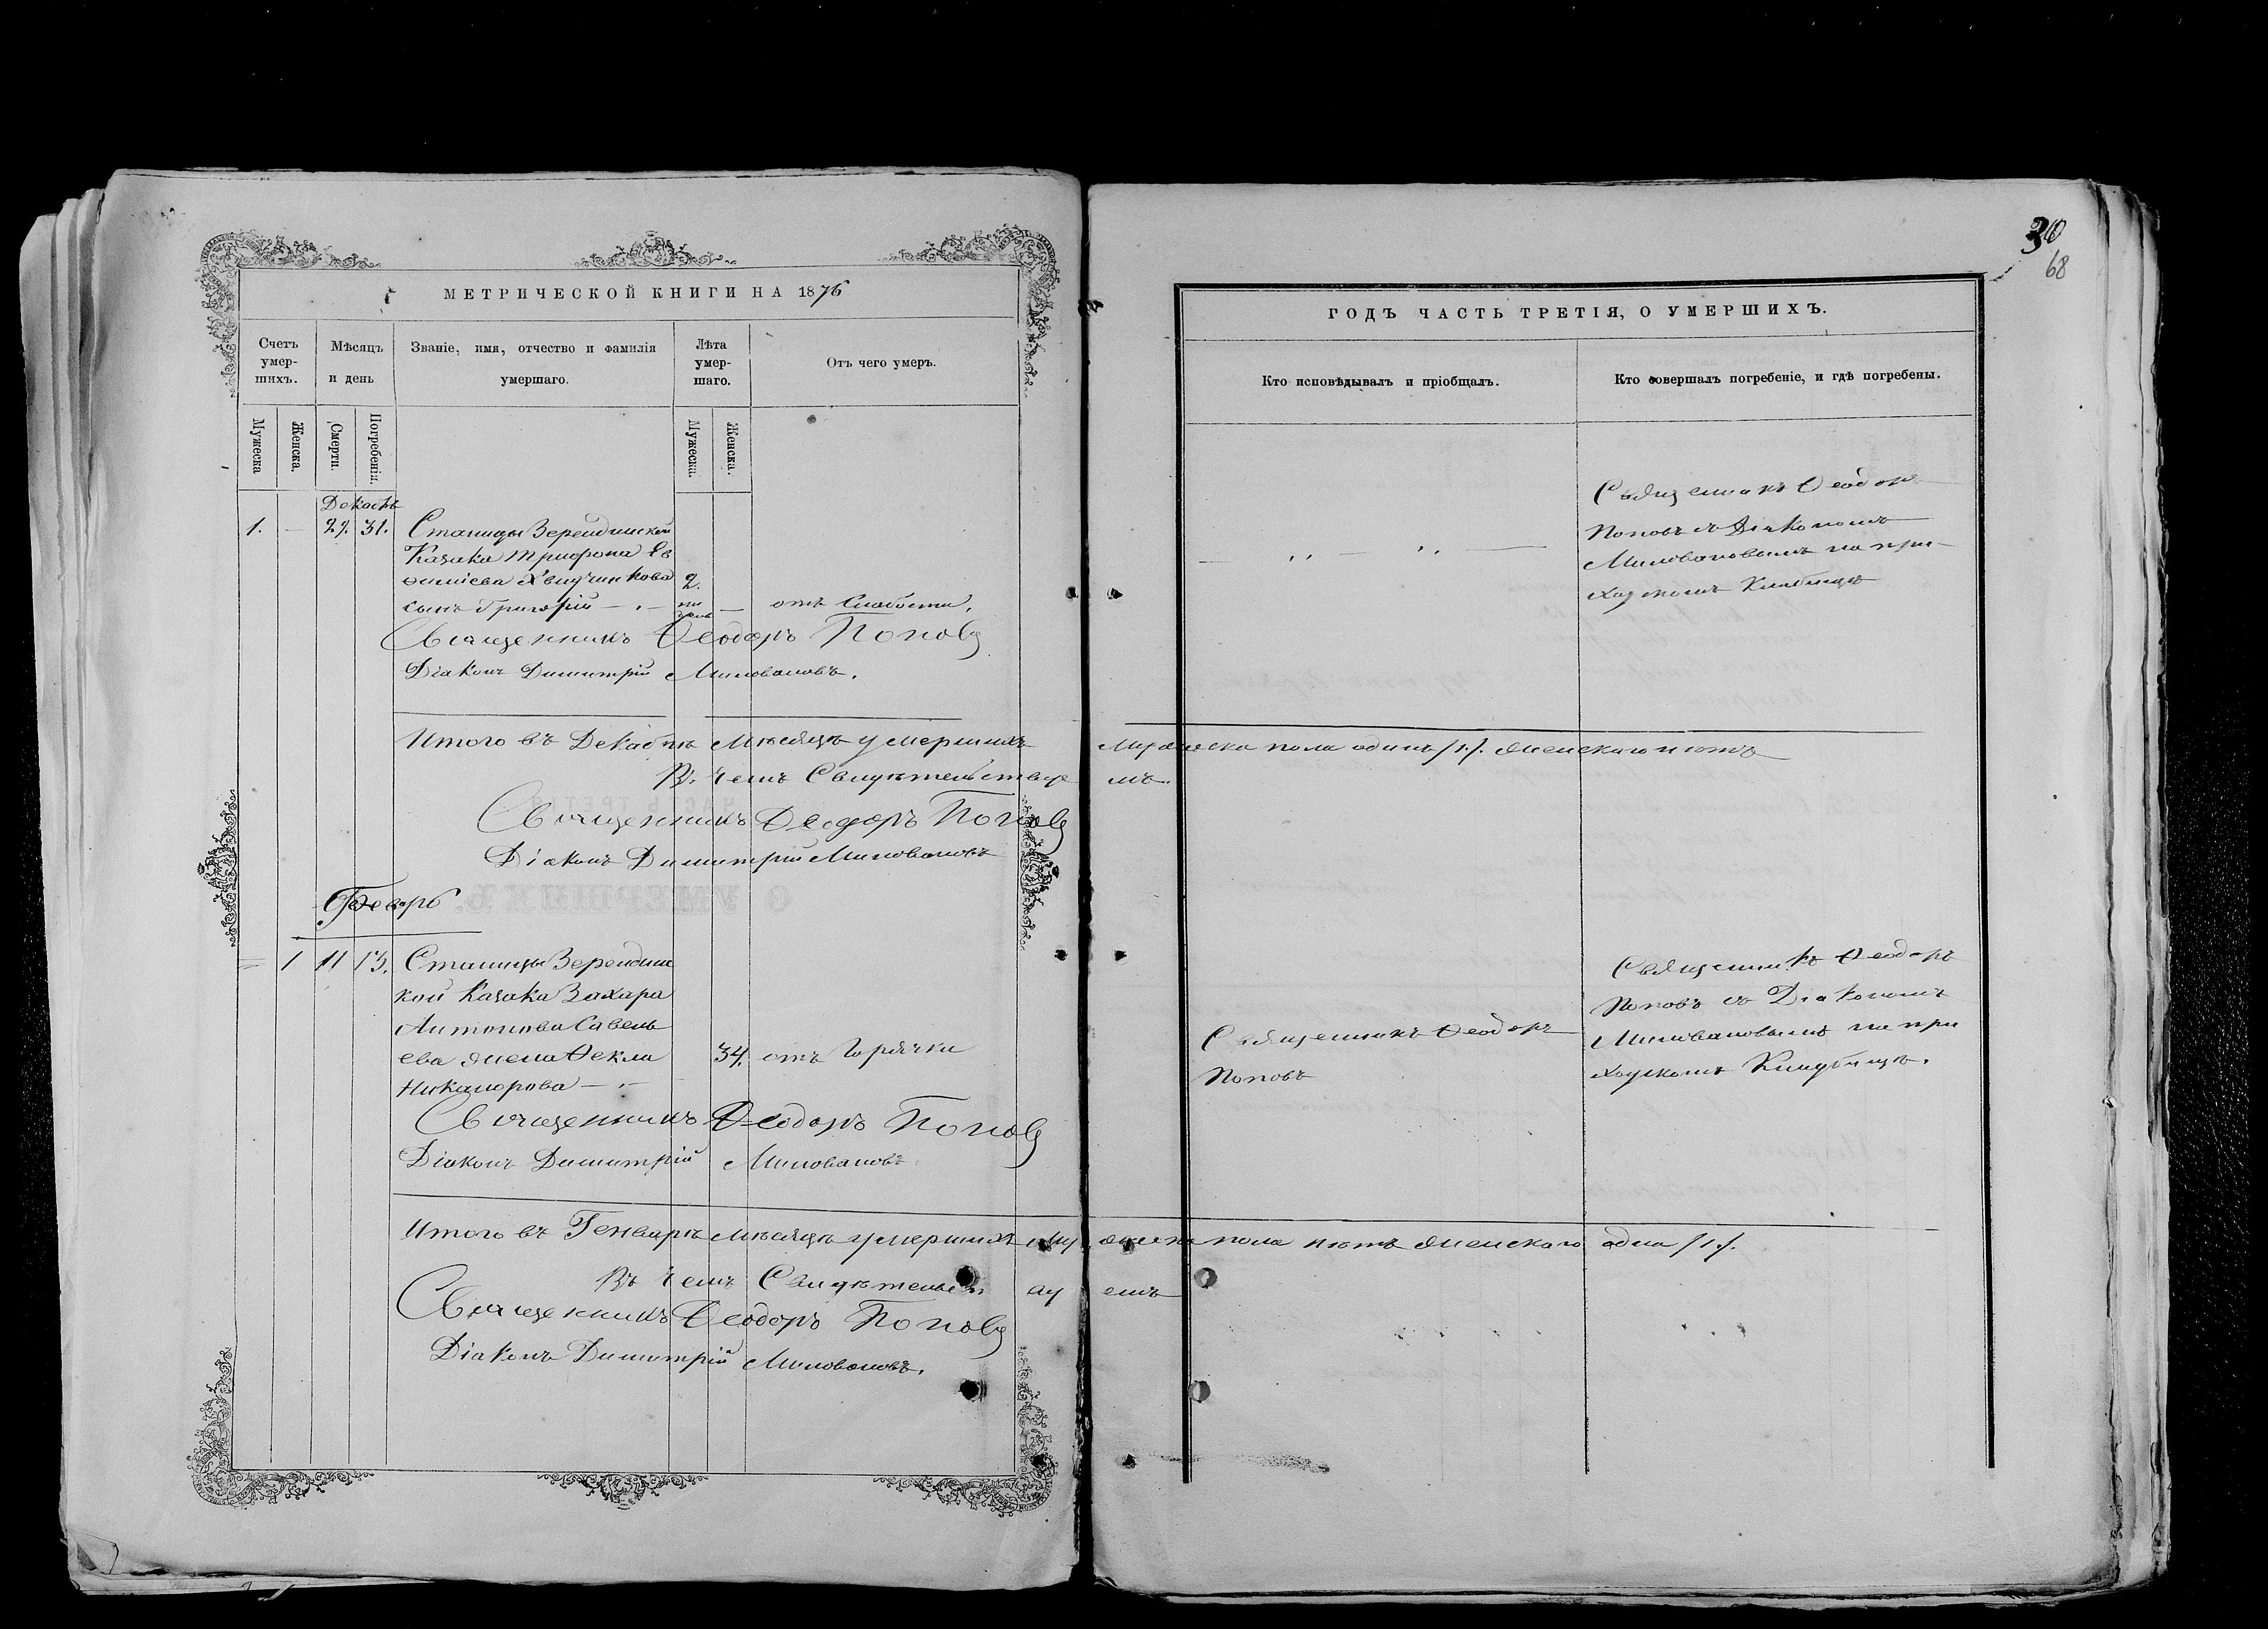 МЕТРИЧЕСКОЙ КНИГИ НА 1876
Счетъ умер-шихъ.
Мѣсяцъ и день
Званіе, имя, отчество и фамилія умершаго.
Лѣта умер-шаго.
Отъ чего умеръ.
Мужеска
Женска.
Смерти.
Погребенія.
Мужеска.
Женска.
1. — 29. 31. Станицы Зерендинской
Казака Трифона Ев
ѳиміева 2.
сынъ Григорій — отъ Слабости.
Священникъ Ѳеодоръ Поповъ
Діаконъ Димитрій Миловановъ.
Итого въ Декабрѣ Мѣсяцѣ умершихъ
В. чемъ Свидѣтельствуе
Священникъ Ѳеодоръ Поповъ
Діаконъ Димитрій Миловановъ
= 1 11 13. Станицы Зерендин
кой Казака Захара
Антонова Савель
ева жена Ѳекла 34. отъ Горячки
Никанорова —
Священникъ Ѳеодоръ Поповъ
Діаконъ Димитрій Миловановъ
Итого въ Генварѣ Мѣсяцѣ умершихъ му
Въ чемъ Свидѣтельст
Священникъ Ѳеодоръ Поповъ
Діаконъ Димитрій Миловановъ.
68
ГОДЪ ЧАСТЬ ТРЕТІЯ, О УМЕРШИХЪ.
Кто исповѣдывалъ и пріобщалъ.
Кто совершалъ погребеніе, и гдѣ погребены.
Священникъ Ѳеодоръ
Поповъ съ Діакономъ
Миловановымъ на при-
ходскомъ Кладбищѣ
Мужеска пола одинъ /1./. женскаго нѣтъ
мъ.
Священникъ Ѳеодоръ
Поповъ
Священникъ Ѳеодоръ
Поповъ съ Діакономъ
Миловановымъ на при
ходскомъ Кладбищѣ.
жеска пола нѣтъ женскаго одна /1./.
емъ